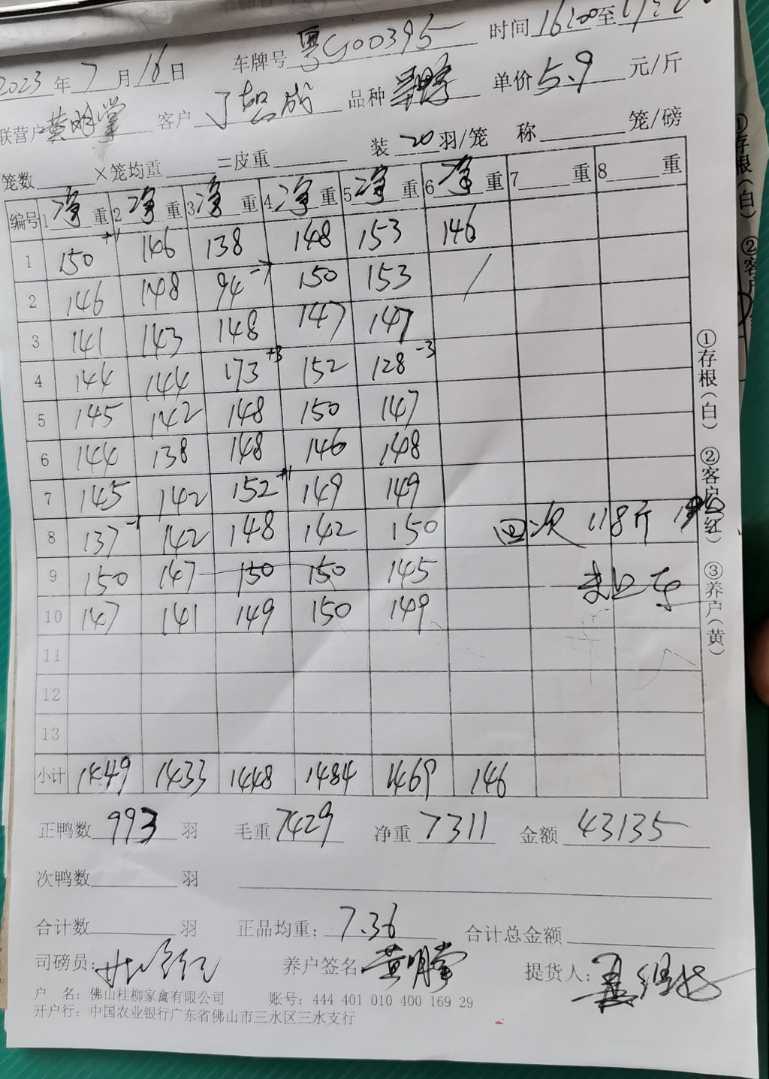 2023年7月16日 车牌号 粤G00395 时间16:00至
联营户黄明堂 客户 品种 单价5.9元/斤
笼数 ×笼均重 =皮重 装20羽/笼 称 笼/磅
编号 1净重 2净重 3净重 4净重 5净重 6净重 7 重 8 重
1 150+1 146 138 148 153 146
2 146 148 94-7 150 153 /
3 141 143 148 147 147
4 144 144 173+3 152 128-3
5 145 142 148 150 147
6 144 138 148 146 148
7 145 142 152+1 149 149
8 137-1 142 148 142 150 回次 118斤
9 150 147 150 150 145
10 147 141 149 150 149
11
12
13
小计 1449 1433 1448 1484 1469 146
正鸭数 993 羽 毛重 7429 净重 7311 金额 43135
次鸭数 羽
合计数 羽 正品均重: 7.36 合计总金额
司磅员: 养户签名 黄明堂 提货人:
户 名: 佛山桂柳家禽有限公司 账号: 444 401 010 400 169 29
开户行: 中国农业银行广东省佛山市三水区三水支行
①存根(白) ②客户(红) ③养户(黄)
①存根(白) ②客户